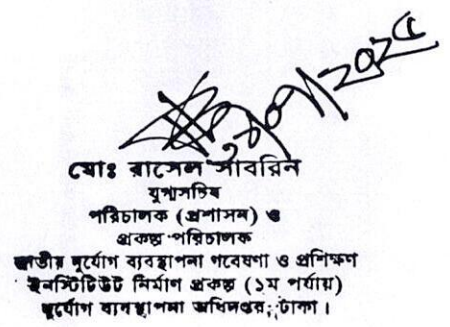 মোঃ রাসেল সাবরিন
যুগ্মসচিব
পরিচালক (প্রশাসন) ও
প্রকল্প পরিচালক
জাতীয় দুর্যোগ ব্যবস্থাপনা গবেষণা ও প্রশিক্ষণ
ইনস্টিটিউট নির্মাণ প্রকল্প (১ম পর্যায়)
দুর্যোগ ব্যবস্থাপনা অধিদপ্তর, ঢাকা।